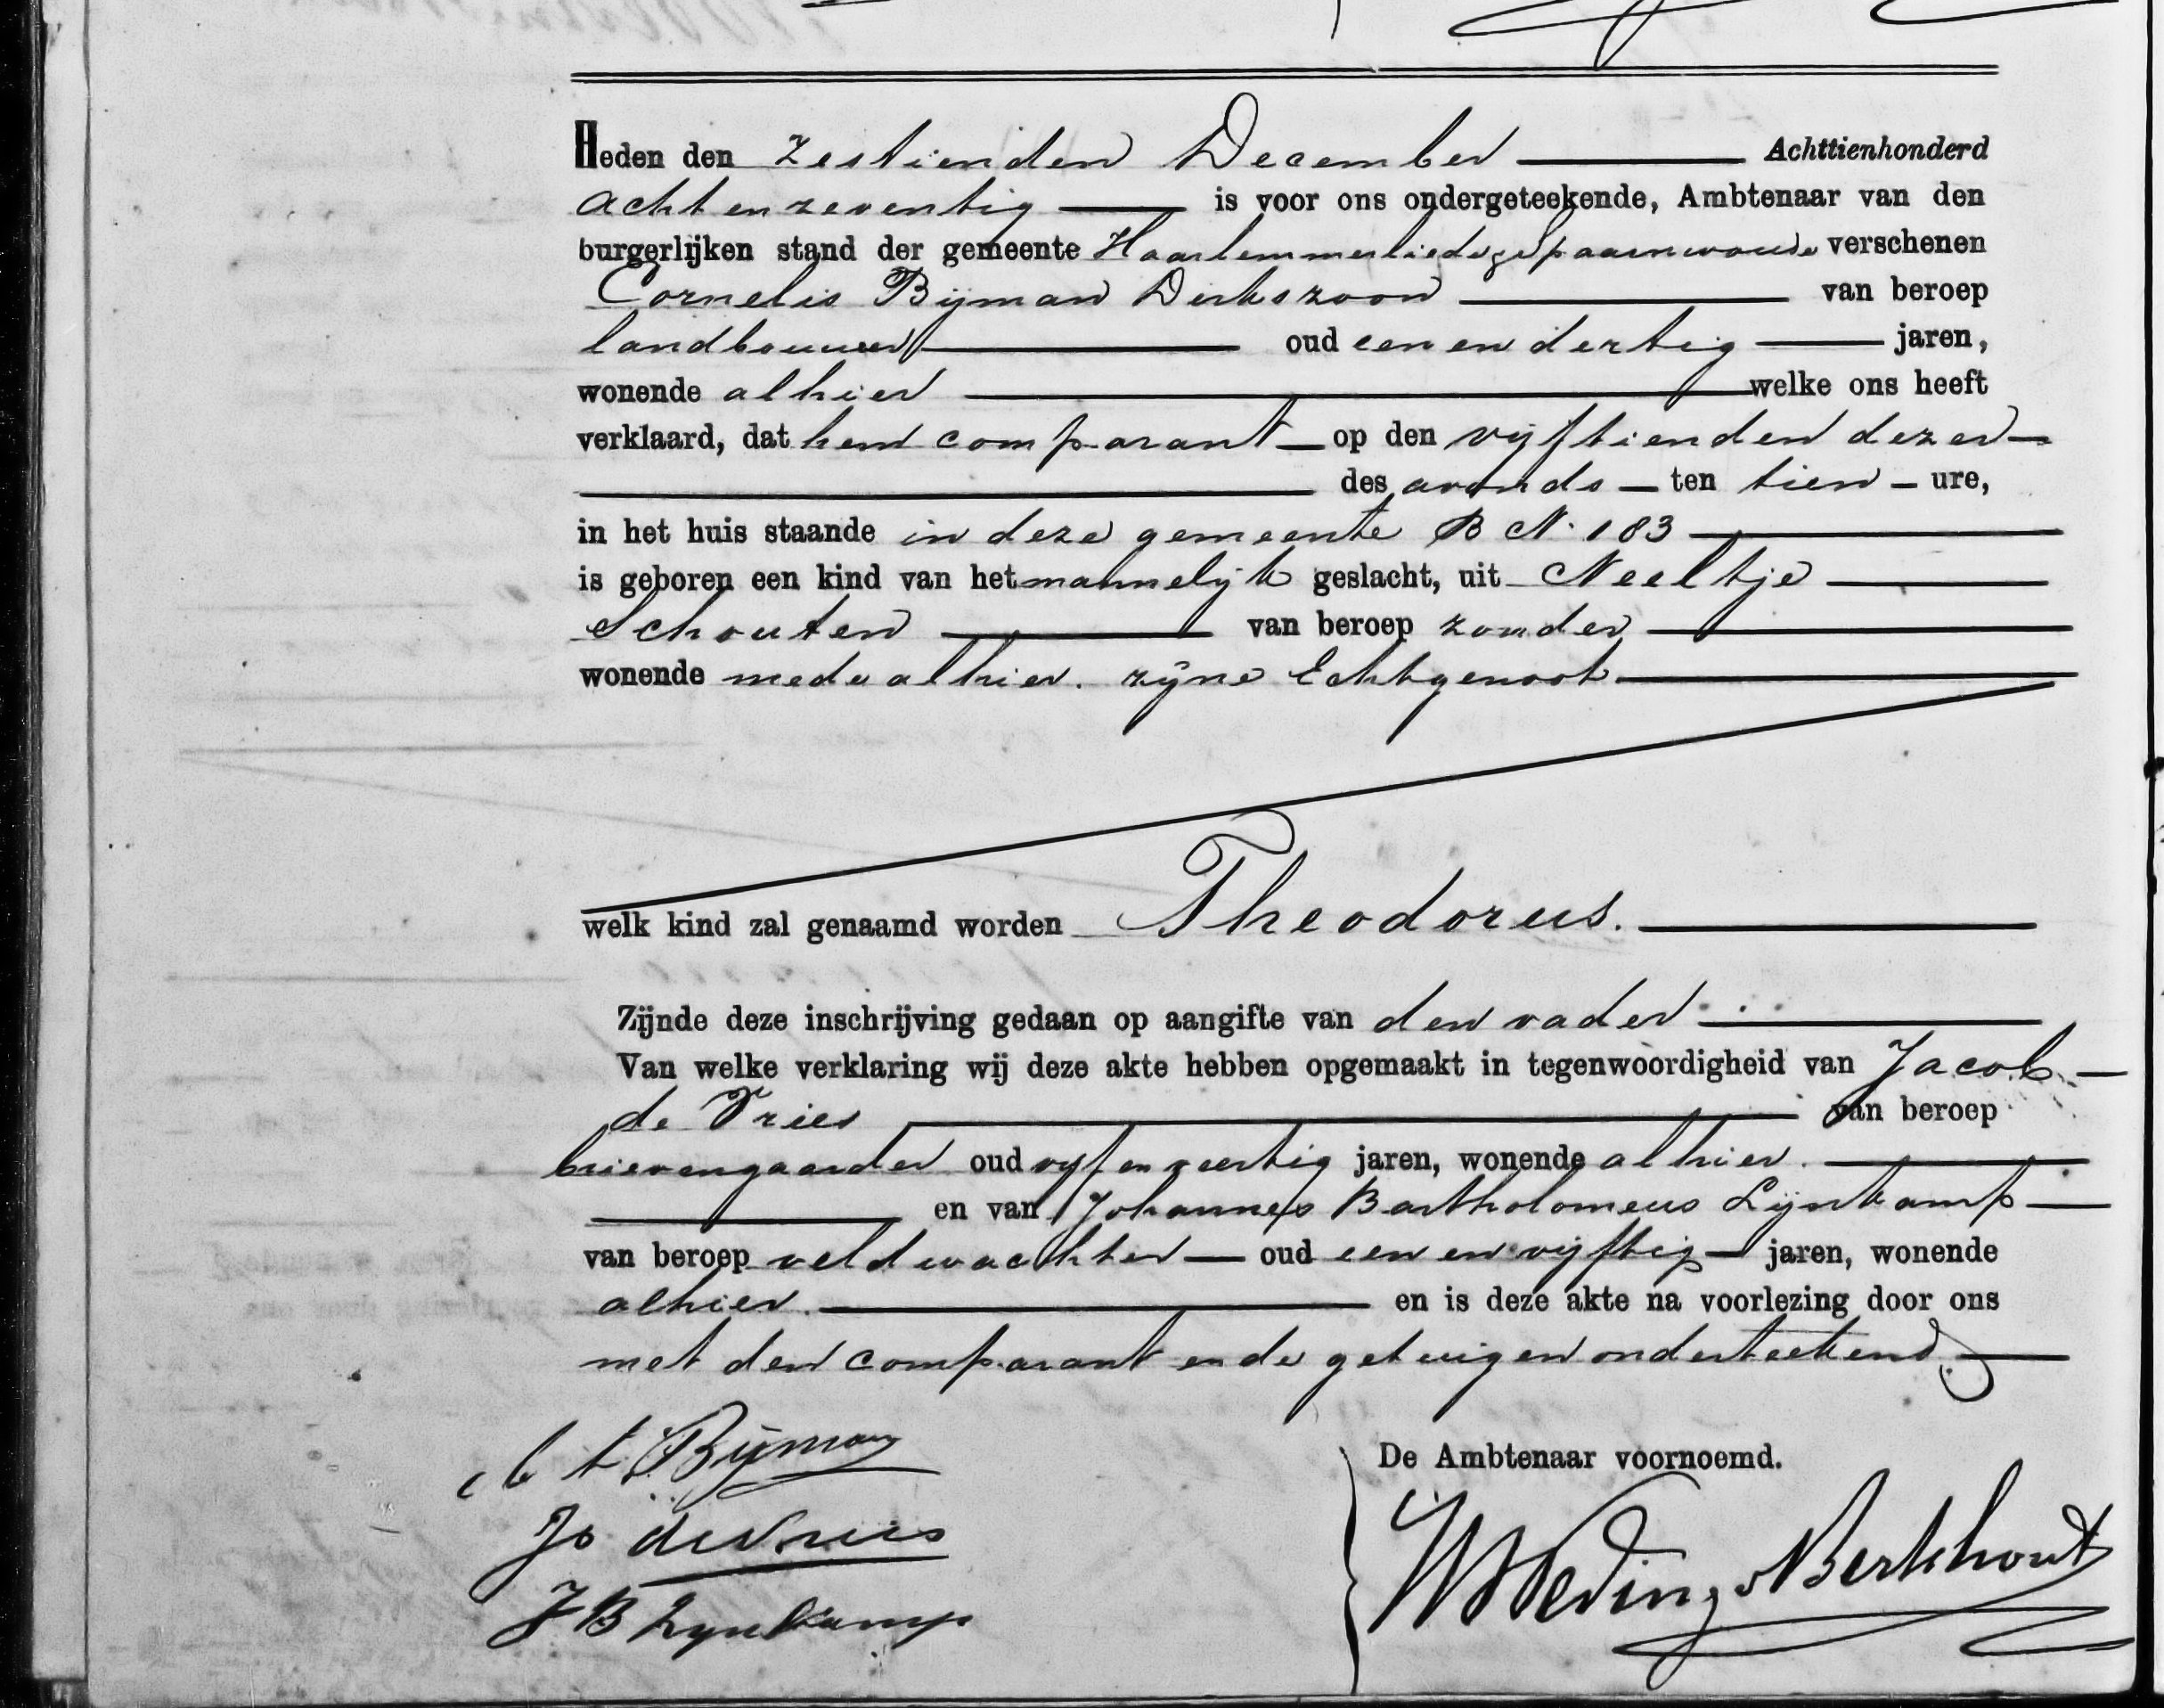 Heden den zestienden December Achttienhonderd
acht en zeventig is voor ons ondergeteekende, Ambtenaar van den
burgerlijken stand der gemeente Haarlemmerliede c.a. Spaarnwoude verschenen
Cornelis Bijman Dirkszoon van beroep
landbouwer oud een en dertig jaren,
wonende alhier welke ons heeft
verklaard, dat hem comparant op den vijftienden dezer
des avonds ten tien ure,
in het huis staande in deze gemeente B N. 183
is geboren een kind van het mannelijk geslacht, uit Neeltje
Schouten van beroep zonder
wonende mede alhier. zijne Echtgenoot
welk kind zal genaamd worden Theodorus.
Zijnde deze inschrijving gedaan op aangifte van den vader
Van welke verklaring wij deze akte hebben opgemaakt in tegenwoordigheid van Jacob
de Vries van beroep
brievengaarder oud vijf en veertig jaren, wonende alhier.
en van Johannes Bartholomeus Lijnkamp
van beroep veldwachter oud een en vijftig jaren, wonende
alhier. en is deze akte na voorlezing door ons
met den comparant en de getuigen onderteekend.
Bijman
De Ambtenaar voornoemd.
Jb de Vries
J B Lynkamp
Teding v Berkhout